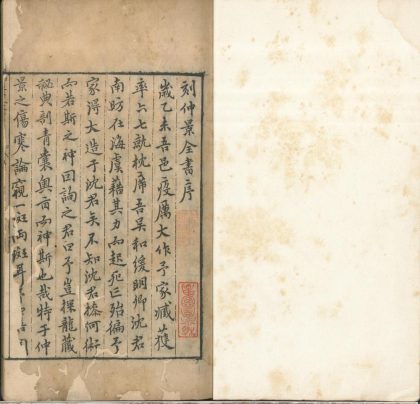 刻仲景全書序
歲乙未吾邑疫厲大作予家臧獲
率六七就枕席吾吳和緩明卿沈君
南昉在海虞藉其力而起死亡殆徧予
家得大造于沈君矣不知沈君操何術
而若斯之神因詢之君曰予豈探龍藏
秘典剖青囊奧旨而神斯也哉特于仲
景之傷寒論窺一斑兩斑耳